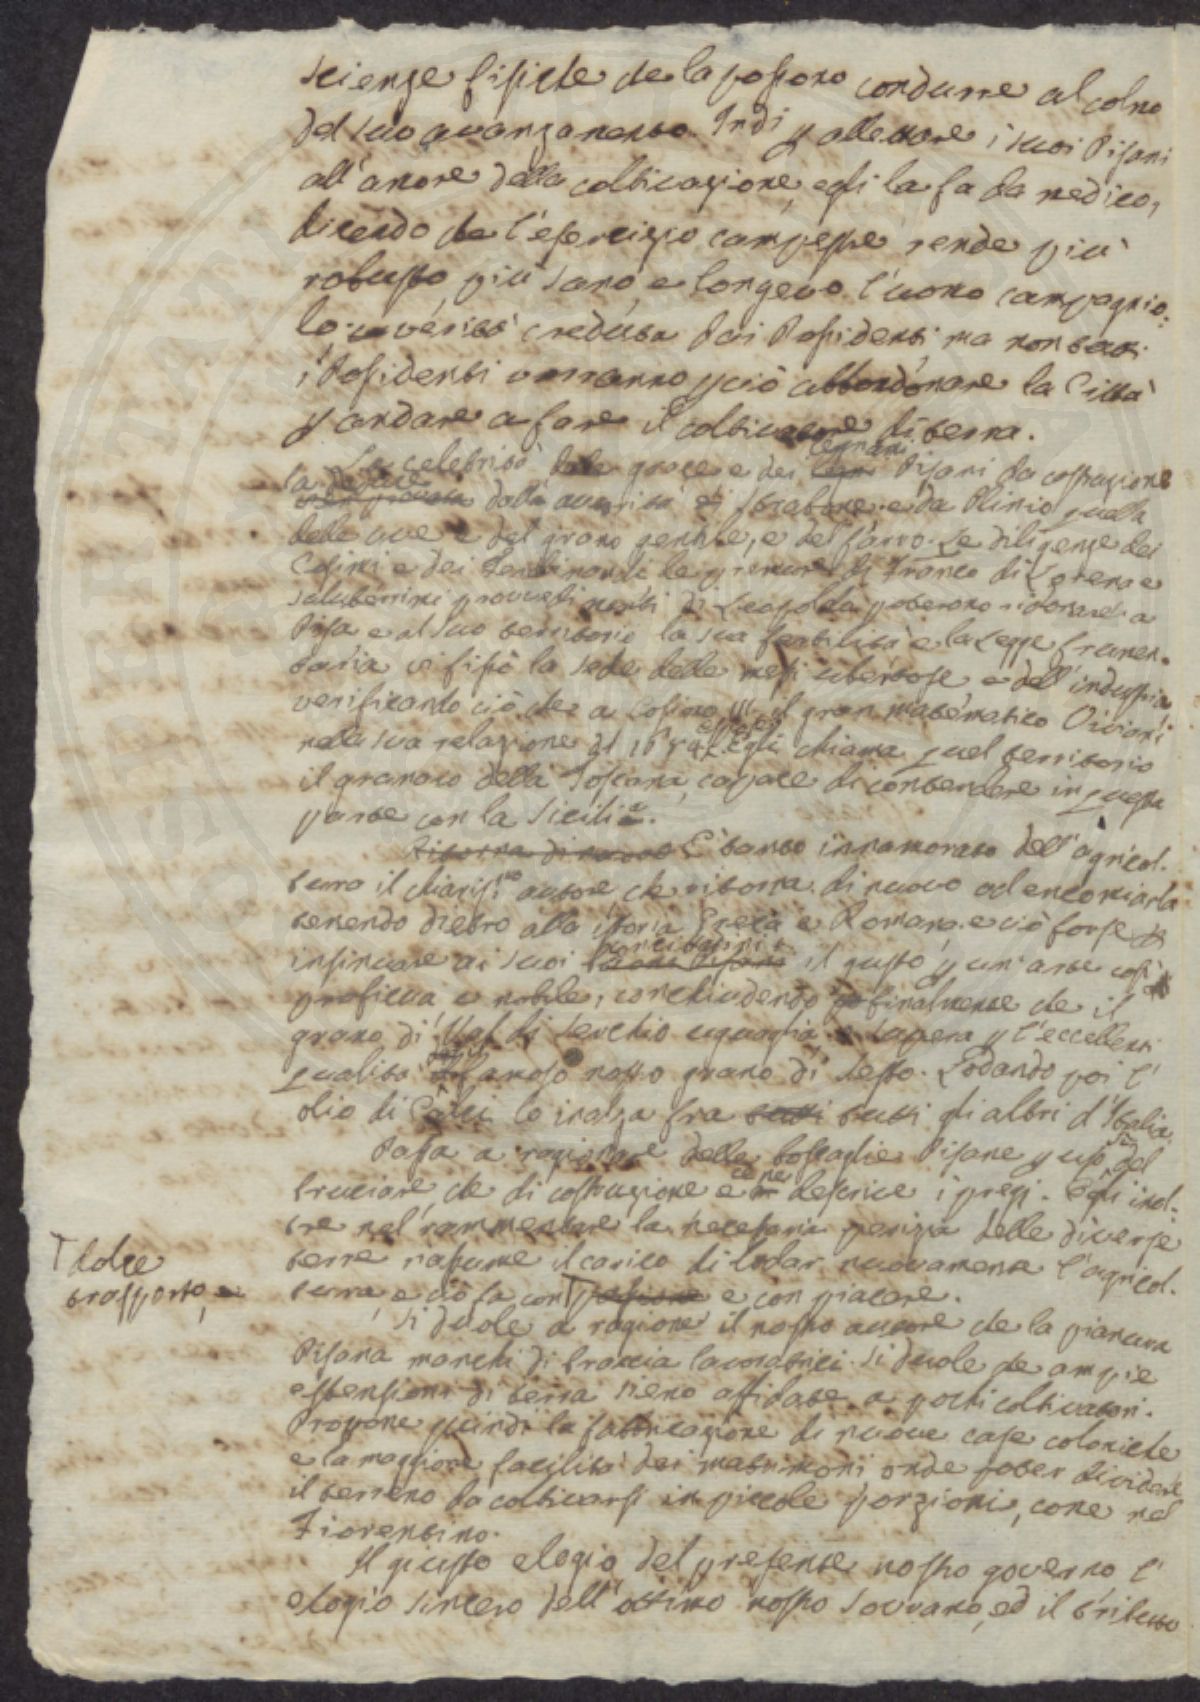 scienze fisiche che la possono condurre al colmo
del suo avanzamento. Indi p allettare i suoi Pisani
all'amore della coltivazione, egli la fa da medico,
dicendo che l'esercizio campestre rende più
robusto, più sano, e longevo l'uomo campagnio:
lo: verità creduta dai Possidenti, ma non tutti
i Possidenti vorranno p ciò abbandonare la Città
p andare a fare il coltivatore di terra.
La celebrità delle grace e dei legnami Pisani da costruzione
la desume dall'autorità di Strabone, e da Plinio quella
delle uve e del grano gentile, e del farro. Le diligenze dei
Cosimi e dei Ferdinandi le premure di Franco di Lorena e
saluberrimi provvedimenti di Leopoldo poterono ridonare a
Pisa e al suo territorio la sua fertilità e la Legge frumen-
taria vi fissò la sede delle messi ubertose, e dell'industria
verificando ciò che a Cosimo III il gran matematico Viviani
nella sua relazione di 1684 espose. Egli chiama quel territorio
il granaio della Toscana, capace di contendere in questa
parte con la Sicilia.
Ritorna di nuovo È tanto innamorato dell'agricol-
tura il chiariss.mo autore, che ritorna di nuovo ad encomiarla
tenendo dietro alla istoria Greca e Romana, e ciò forse p
insinuare ai suoi concittadini il gusto p un'arte così
proficua e nobile, conchiudendo finalmente che il
grano di Val di Serchio uguaglia e supera p l'eccellenti
qualità famoso nostro grano di Sesto. Lodando poi l'
olio di Calci lo inalza fra tutti tutti gli altri d'Italia.
Passa a ragionare delle boscaglie Pisane p uso sì del
bruciare che di costruzione e ce ne descrive i pregi. Egli inol-
tre nel rammentare la necessaria perizia delle diverse
terre riassume il carico di lodar nuovamente l'agricol-
tura, e ciò fa con passione e con piacere.
dolce
trasporto, e
Si duole a ragione il nostro autore che la pianura
Pisana manchi di braccia lavoratrici. Si duole che ampie
estensioni di terra sieno affidate a pochi coltivatori.
Propone quindi la fabbricazione di nuove case coloniche
e la maggiore facilità dei matrimoni onde poter dividere
il terreno da coltivarsi in piccole porzioni, come nel
Fiorentino.
Il giusto elogio del presente nostro governo l'
elogio sincero dell'ottimo nostro Sovrano, ed il tributo